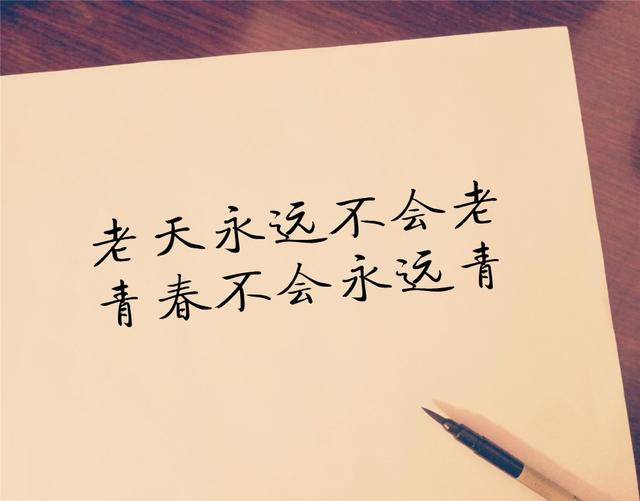 老天永远不会老
青春不会永远青